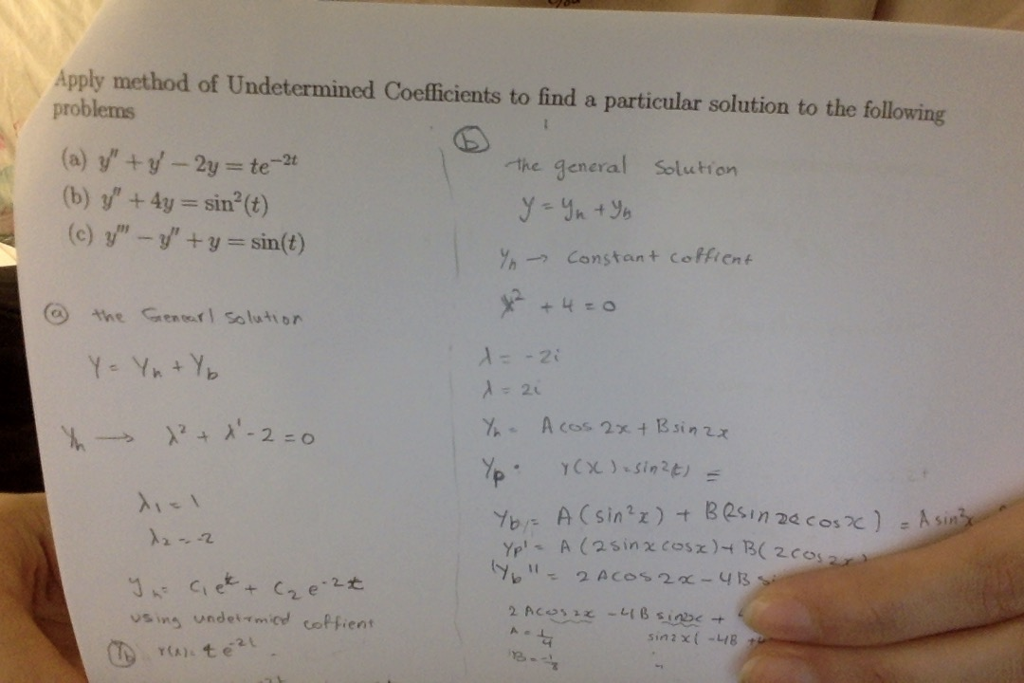 Apply method of Undetermined Coefficients to find a particular solution to the following
problems
(a) y'' + y' − 2y = te^{−2t}
(b) y'' + 4y = sin²(t)
(c) y''' − y'' + y = sin(t)
ⓐ the Genearl solution
Y = Yh + Yb
Yh → λ² + λ' - 2 = 0
λ1 = 1
λ2 = -2
yh = C1 e^t + C2 e^{-2t}
using undetermied coffient
Yb r(x) = t e^{-2t}
ⓑ
the general solution
y = yh + yb
yh → constant coffient
λ² + 4 = 0
λ = -2i
λ = 2i
Yh = A cos 2x + B sin 2x
Yp = r(x) = sin²(t) =
Yb = A (sin²x) + B(2sin x cos x) = A sin²x
Yp' = A (2 sin x cos x) + B( 2 cos 2x
Yb'' = 2 A cos 2x - 4B
2 A cos 2x - 4B sin 2x +
A = 1/4
sin 2x ( -4B +
B = -1/8